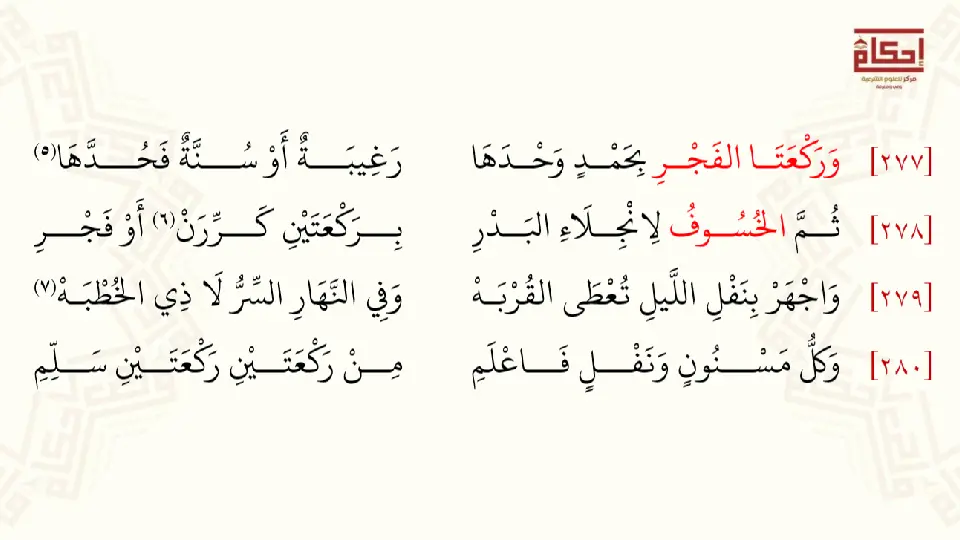 إحكام
مركز للعلوم الشرعية
[٢٧٧] وَرَكْعَتَا الفَجْرِ بِحَمْدٍ وَحْدَهَا رَغِيبَةٌ أَوْ سُنَّةٌ فَحُدَّهَا(٥)
[٢٧٨] ثُمَّ الخُسُوفُ لِانْجِلَاءِ البَدْرِ بِرَكْعَتَيْنِ كَرِّرَنْ(٦) أَوْ فَجْرِ
[٢٧٩] وَاجْهَرْ بِنَفْلِ اللَّيلِ تُعْطَى القُرْبَهْ وَفِي النَّهَارِ السِّرُّ لَا ذِي الخُطْبَهْ(٧)
[٢٨٠] وَكُلُّ مَسْنُونٍ وَنَفْلٍ فَاعْلَمِ مِنْ رَكْعَتَيْنِ رَكْعَتَيْنِ سَلِّمِ